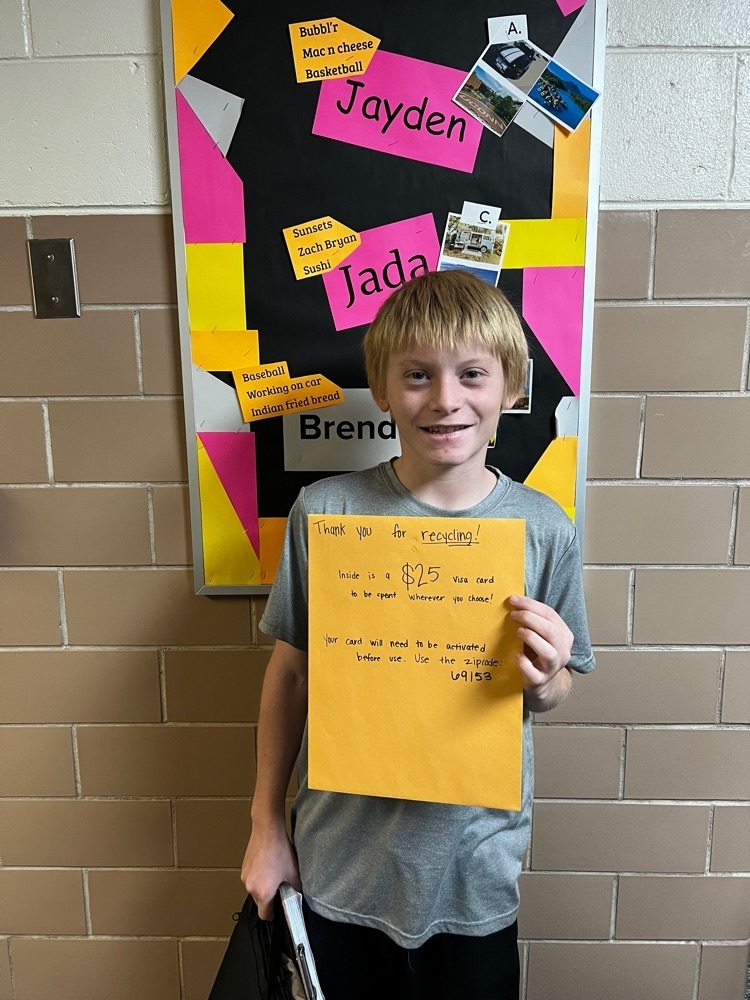 Bubbl'r
Mac n cheese
Basketball
A.
Jayden
UCONN
Sunsets
Zach Bryan
Sushi
C.
Jada
Baseball
Working on car
Indian fried bread
Brend
Thank you for recycling!
Inside is a $25 Visa card
to be spent wherever you choose!
Your card will need to be activated
before use. Use the zipcode:
69153